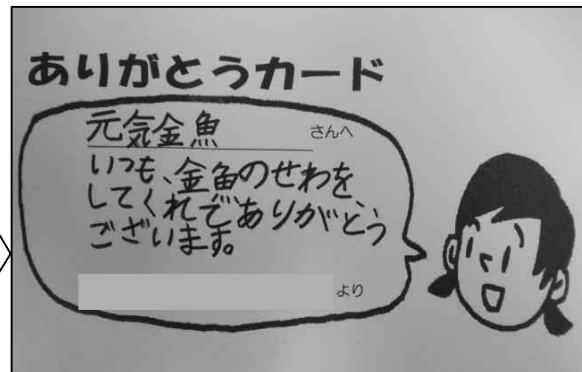 ありがとうカード
元気金魚 さんへ
いつも、金魚のせわを、
してくれてありがとう
ございます。
より